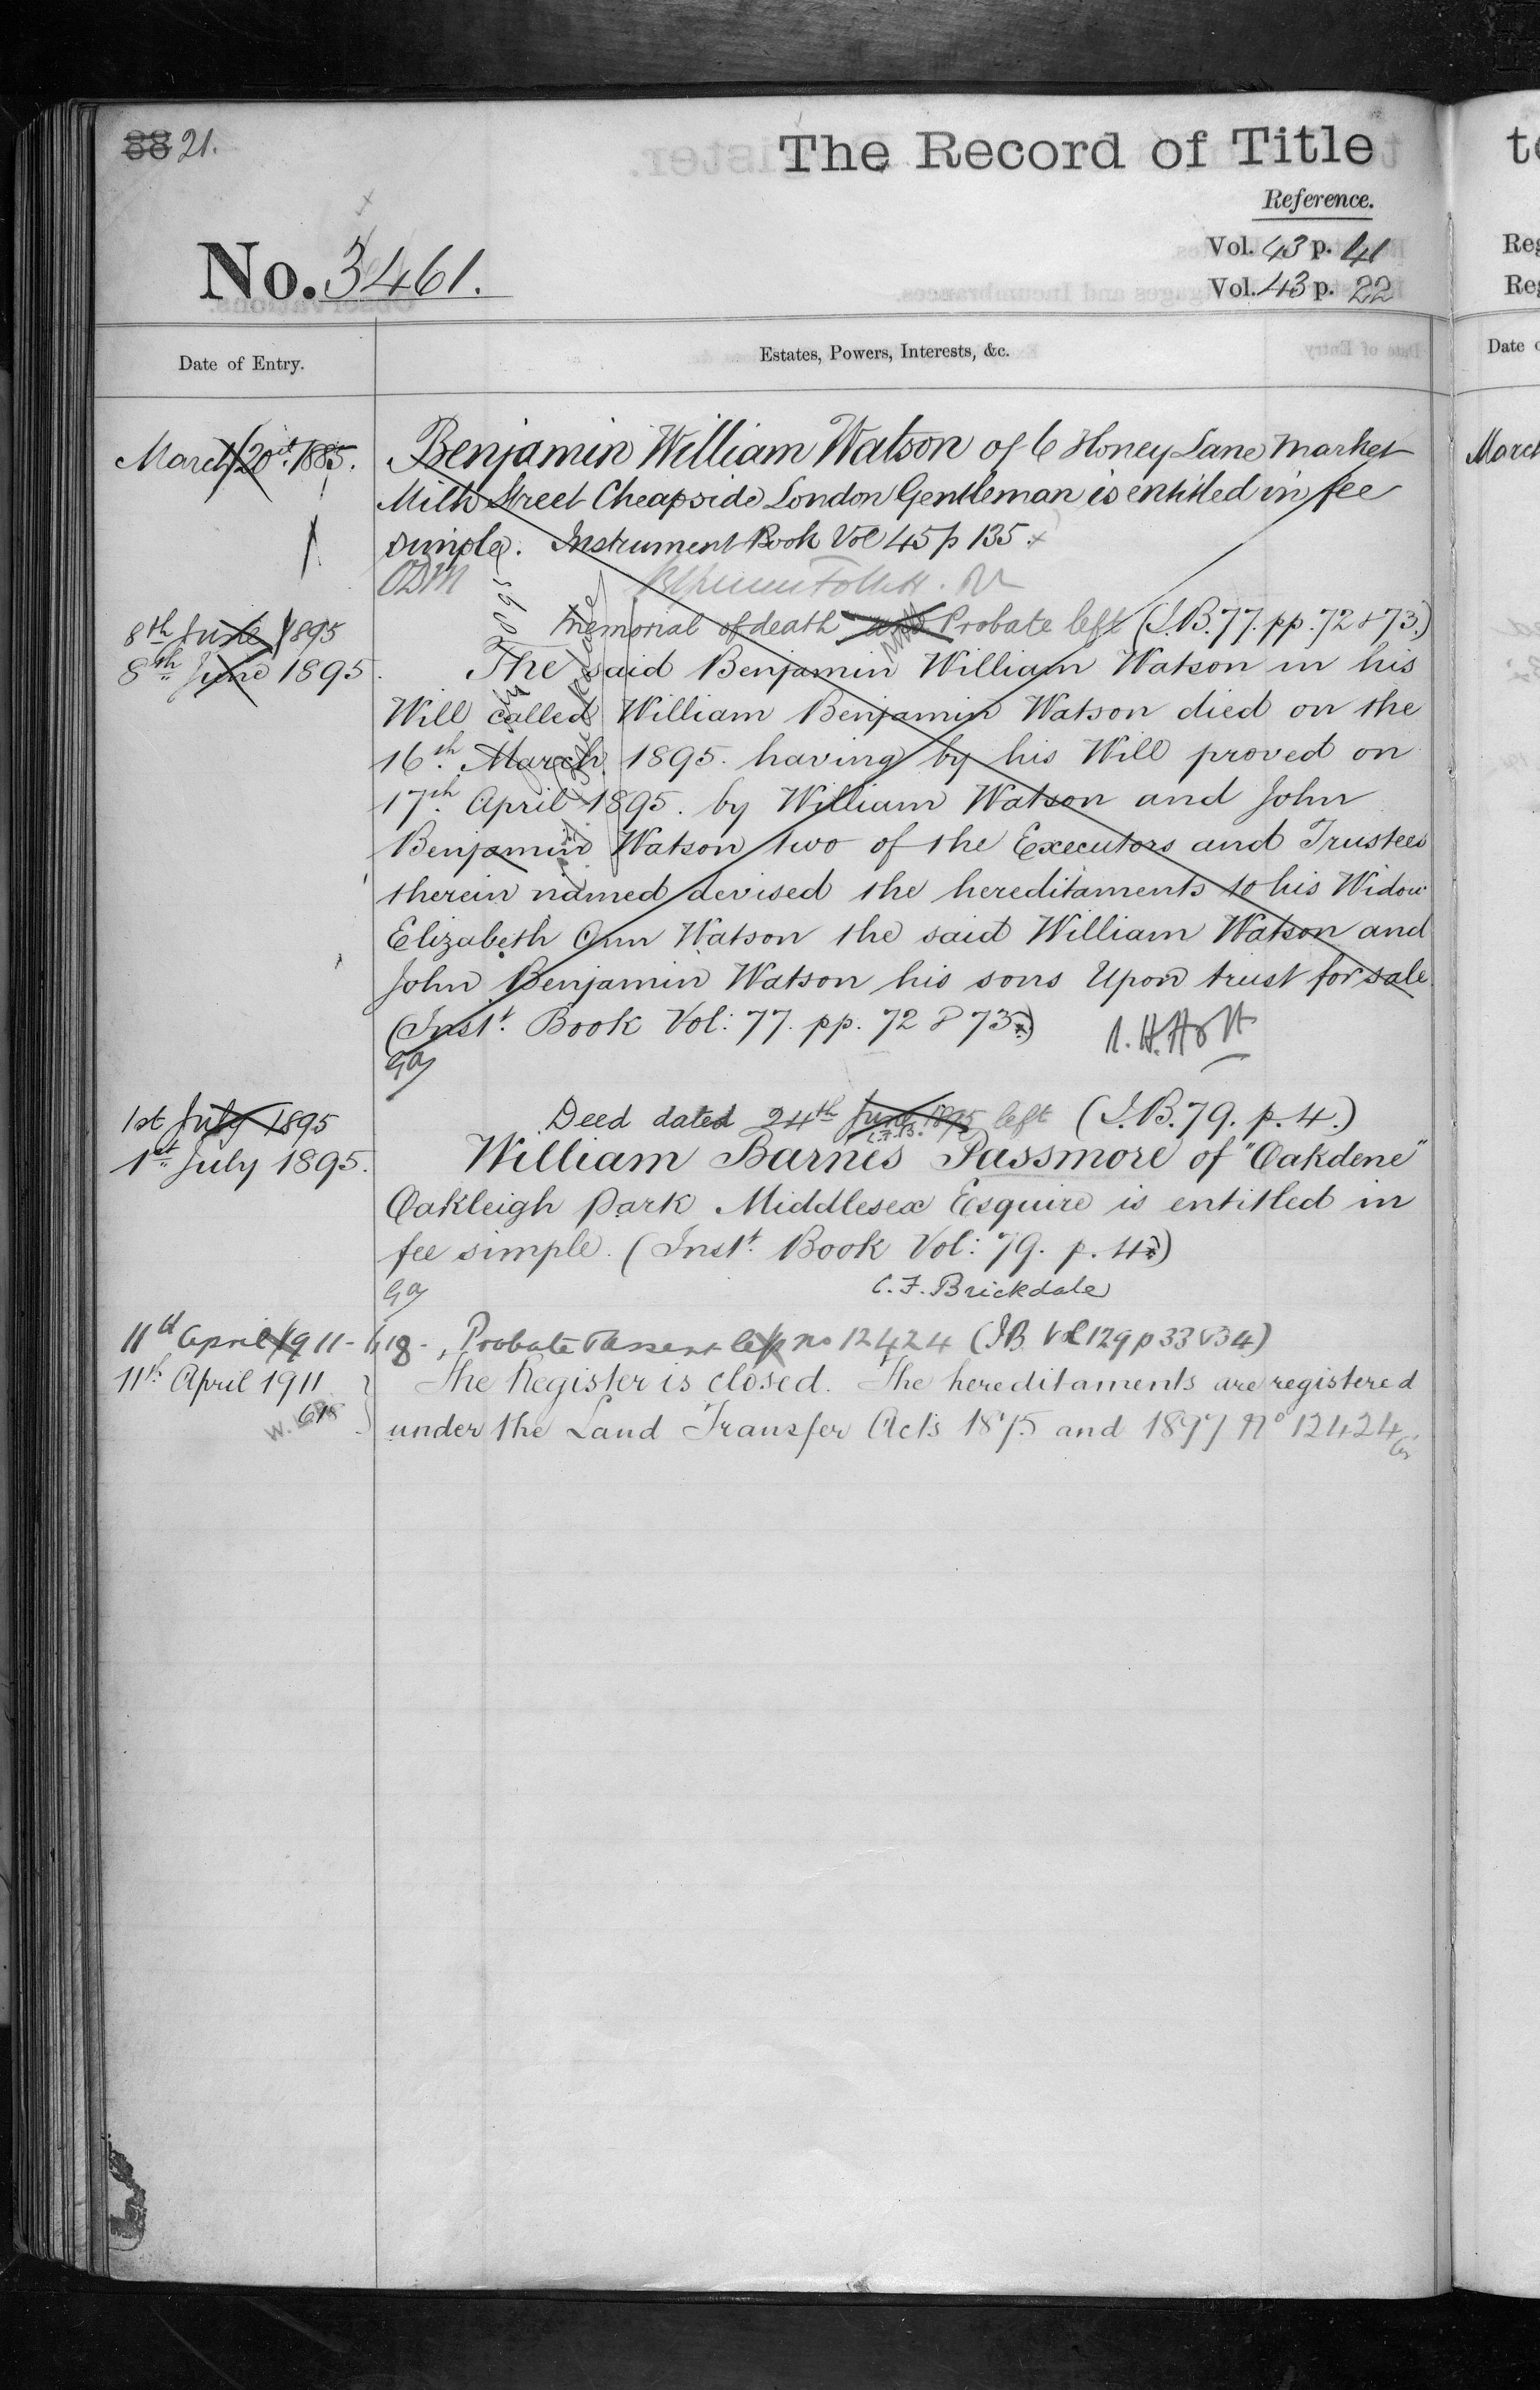 38 21.
The Record of Title
Reference.
No. 3461.
Vol. 43 p. 41
Vol. 43 p. 22
Date of Entry.
Estates, Powers, Interests, &c.
March 20th 1885.
Benjamin William Watson of 6 Honey Lane Market
Milk Street Cheapside London Gentleman is entitled in fee
simple. Instrument Book Vol 45 p 135.
8th June 1895
Memorial of death and Probate left (I.B. 77. pp. 72 & 73.)
8th June 1895.
The said Benjamin William Watson in his
Will called William Benjamin Watson died on the
16th March 1895. having by his Will proved on
17th April 1895. by William Watson and John
Benjamin Watson two of the Executors and Trustees
therein named devised the hereditaments to his Widow
Elizabeth Ann Watson the said William Watson and
John Benjamin Watson his sons Upon trust for sale.
(Inst. Book Vol: 77. pp. 72 & 73.)
R. H. Holt
1st July 1895
Deed dated 24th June 1895 left (I.B. 79. p. 4.)
C.F.B.
1st July 1895.
William Barnes Passmore of "Oakdene"
Oakleigh Park Middlesex Esquire is entitled in
fee simple. (Inst. Book Vol: 79. p. 4.)
C. F. Brickdale
11th April 1911 - 618 -
Probate & Assent left no 12424 (I.B. Vol 129 p 33 & 34)
11th April 1911
618
The Register is closed. The hereditaments are registered
under the Land Transfer Acts 1875 and 1897 No 12424
March
Date